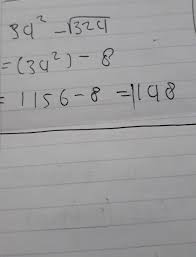 34² - √324
= (34²) - 8
= 1156 - 8 = 1148